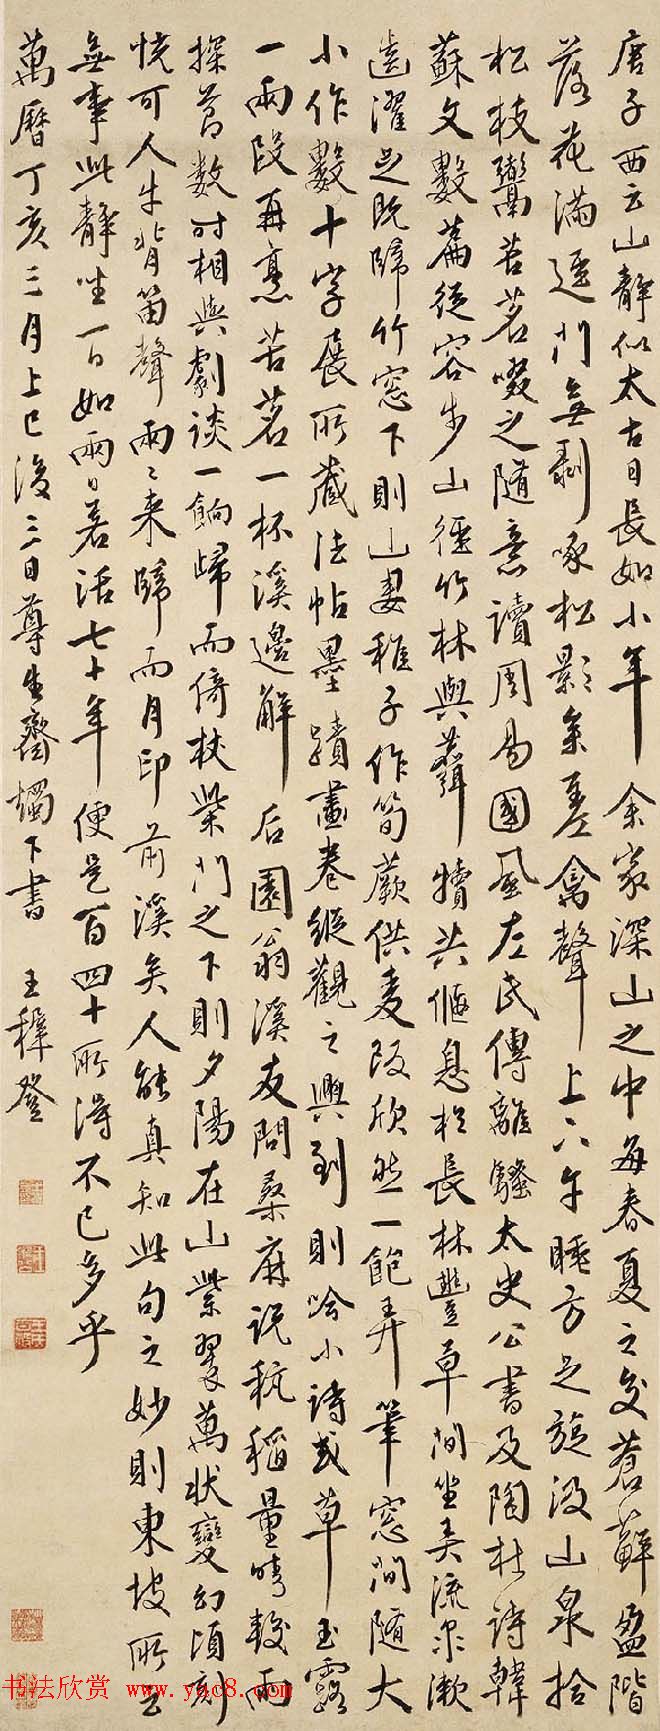 唐子西云山靜似太古日長如小年余家深山之中每春夏之交蒼蘚盈階
落花滿逕門無剝啄松影參差禽聲上下午睡方足旋汲山泉拾
松枝鬻苦茗啜之隨意讀周易國風左氏傳離騷太史公書及陶杜詩韓
蘇文數篇從容步山徑竹林與麛犢共偃息於長林豐草間坐弄流泉漱
齒濯足既歸竹窓下則山妻稚子作筍蕨供麥飯欣然一飽弄筆窓間隨大
小作數十字展所藏法帖墨蹟畫卷縱觀之興到則吟小詩或草玉露
一兩段再烹苦茗一杯溪邊解后園翁溪友問桑麻說秔稻量晴較雨
探節數時相與劇談一餉歸而倚杖柴門之下則夕陽在山紫翠萬狀變幻頃刻
恍可人牛背笛聲兩兩来歸而月印前溪矣人能真知此句之妙則東坡所云
無事此靜坐一日如兩日若活七十年便是百四十所得不已多乎
萬曆丁亥三月上巳後三日尊生齋燭下書 王穉登
书法欣赏 www.yac8.com